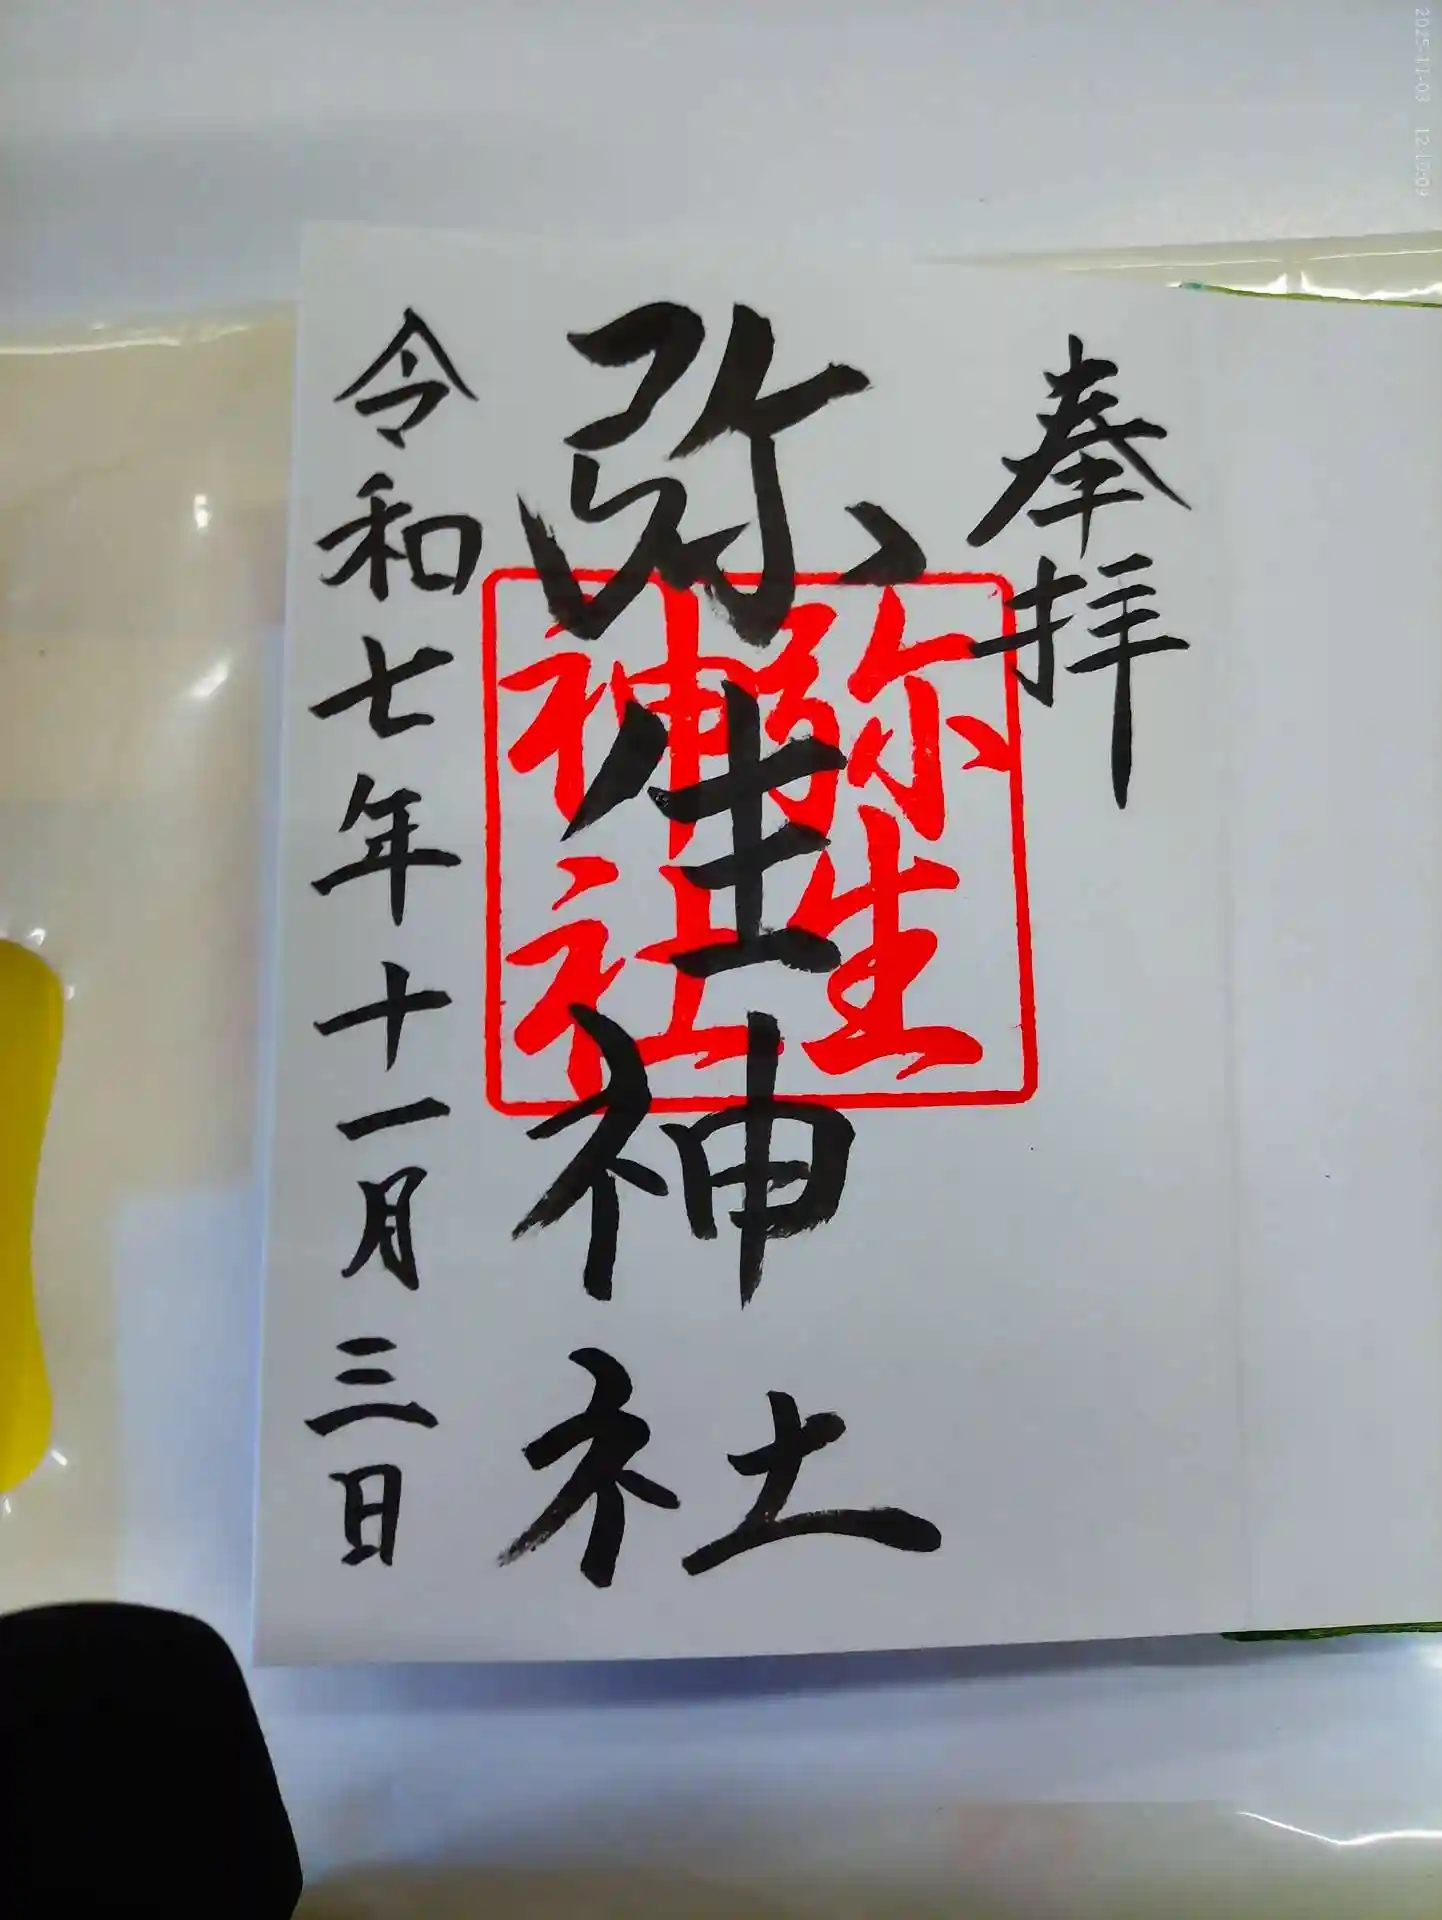 奉拝
弥生神社
弥生
神社
令和七年十一月三日
2025-11-03 12:10:09